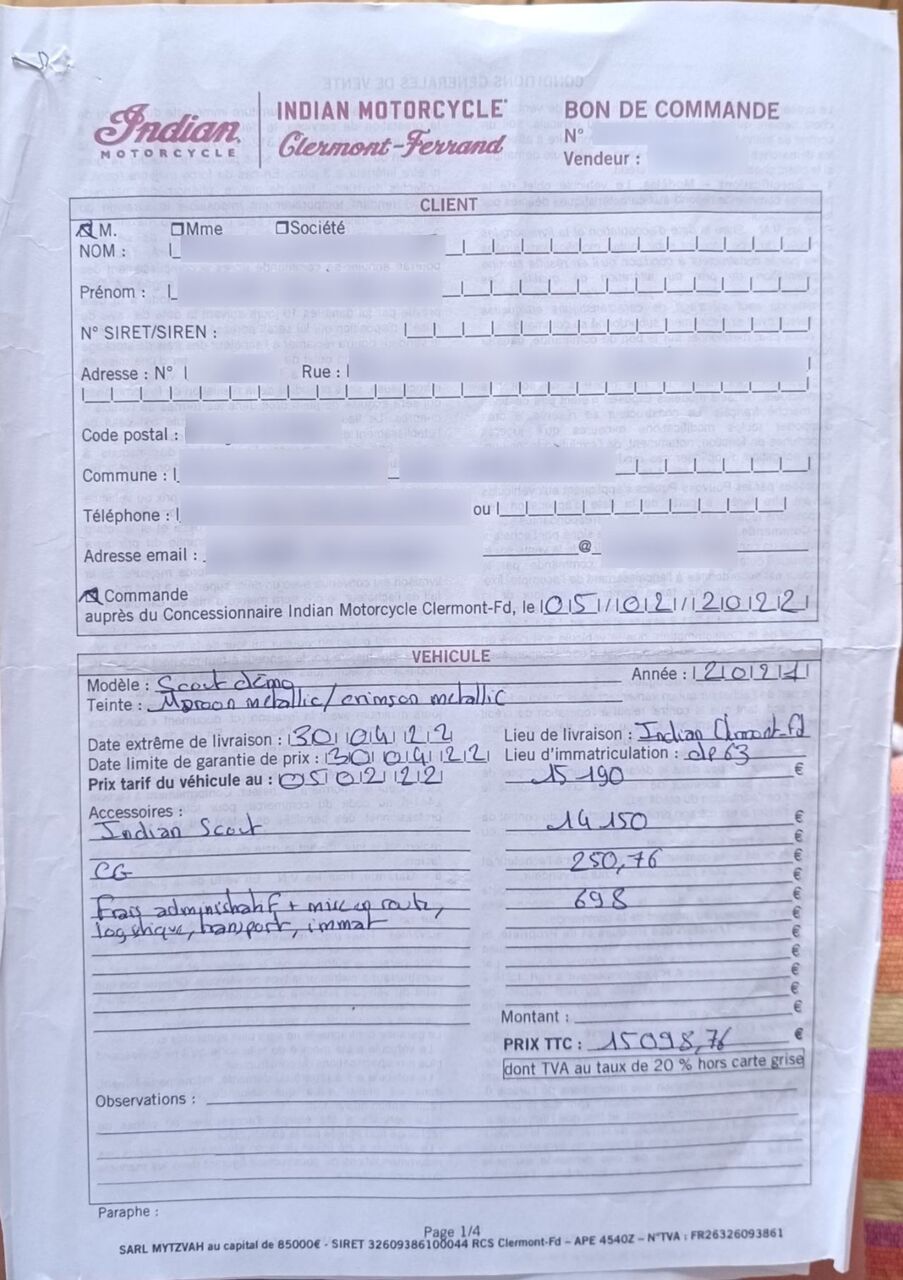 Indian
MOTORCYCLE
INDIAN MOTORCYCLE
Clermont-Ferrand
BON DE COMMANDE
N°
Vendeur :
CLIENT
M. Mme Société
NOM :
Prénom :
N° SIRET/SIREN :
Adresse : N° Rue :
Code postal :
Commune :
Téléphone : ou
Adresse email : @
Commande
auprès du Concessionnaire Indian Motorcycle Clermont-Fd, le 05/02/2022
VEHICULE
Modèle : Scout démo Année : 2021
Teinte : Maroon metallic/crimson metallic
Date extrême de livraison : 30 04 22 Lieu de livraison : Indian Clmont-Fd
Date limite de garantie de prix : 30 04 22 Lieu d'immatriculation : dp 63
Prix tarif du véhicule au : 05 02 22 15 190 €
Accessoires :
Indian Scout 14 150 €
€
CG 250,76 €
€
Frais administratif + mise en route, 698 €
logistique, transport, immat €
€
€
€
€
Montant : €
PRIX TTC : 15098,76 €
dont TVA au taux de 20 % hors carte grise
Observations :
Paraphe :
Page 1/4
SARL MYTZVAH au capital de 85000€ - SIRET 32609386100044 RCS Clermont-Fd – APE 4540Z – N°TVA : FR26326093861